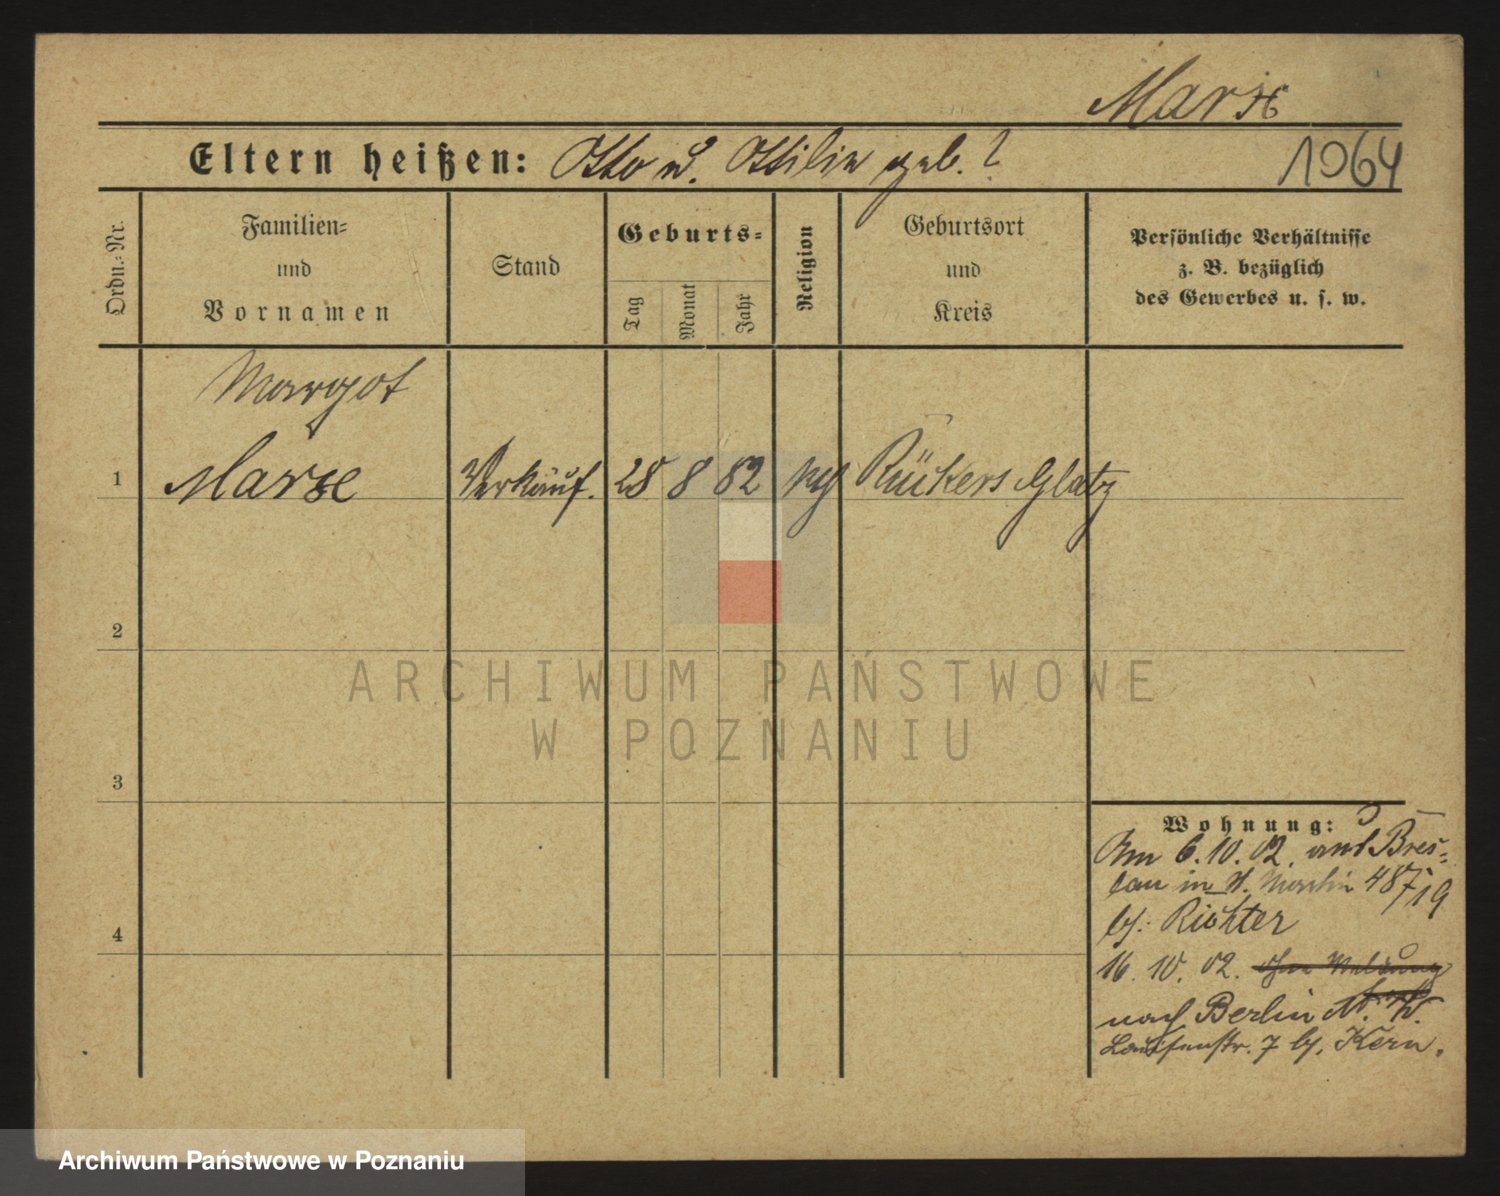 Eltern heißen: Otto u. Ottilie geb. ?
1064
Ordn.-Nr.
Familien-
und
Vornamen
Stand
Geburts-
Tag
Monat
Jahr
Religion
Geburtsort
und
Kreis
Persönliche Verhältnisse
z. B. bezüglich
des Gewerbes u. s. w.
Margot
1 Verkäuf. 28 8 82 Rückers Glatz
2
3
4
Wohnung:
Am 6.10.02. aus Bres-
lau in St. Martin 48
bei: Richter
16. 10. 02. ohne Meldung
nach Berlin N. W.
Louisenstr. 7 bei Kern.
ARCHIWUM PAŃSTWOWE
W POZNANIU
Archiwum Państwowe w Poznaniu